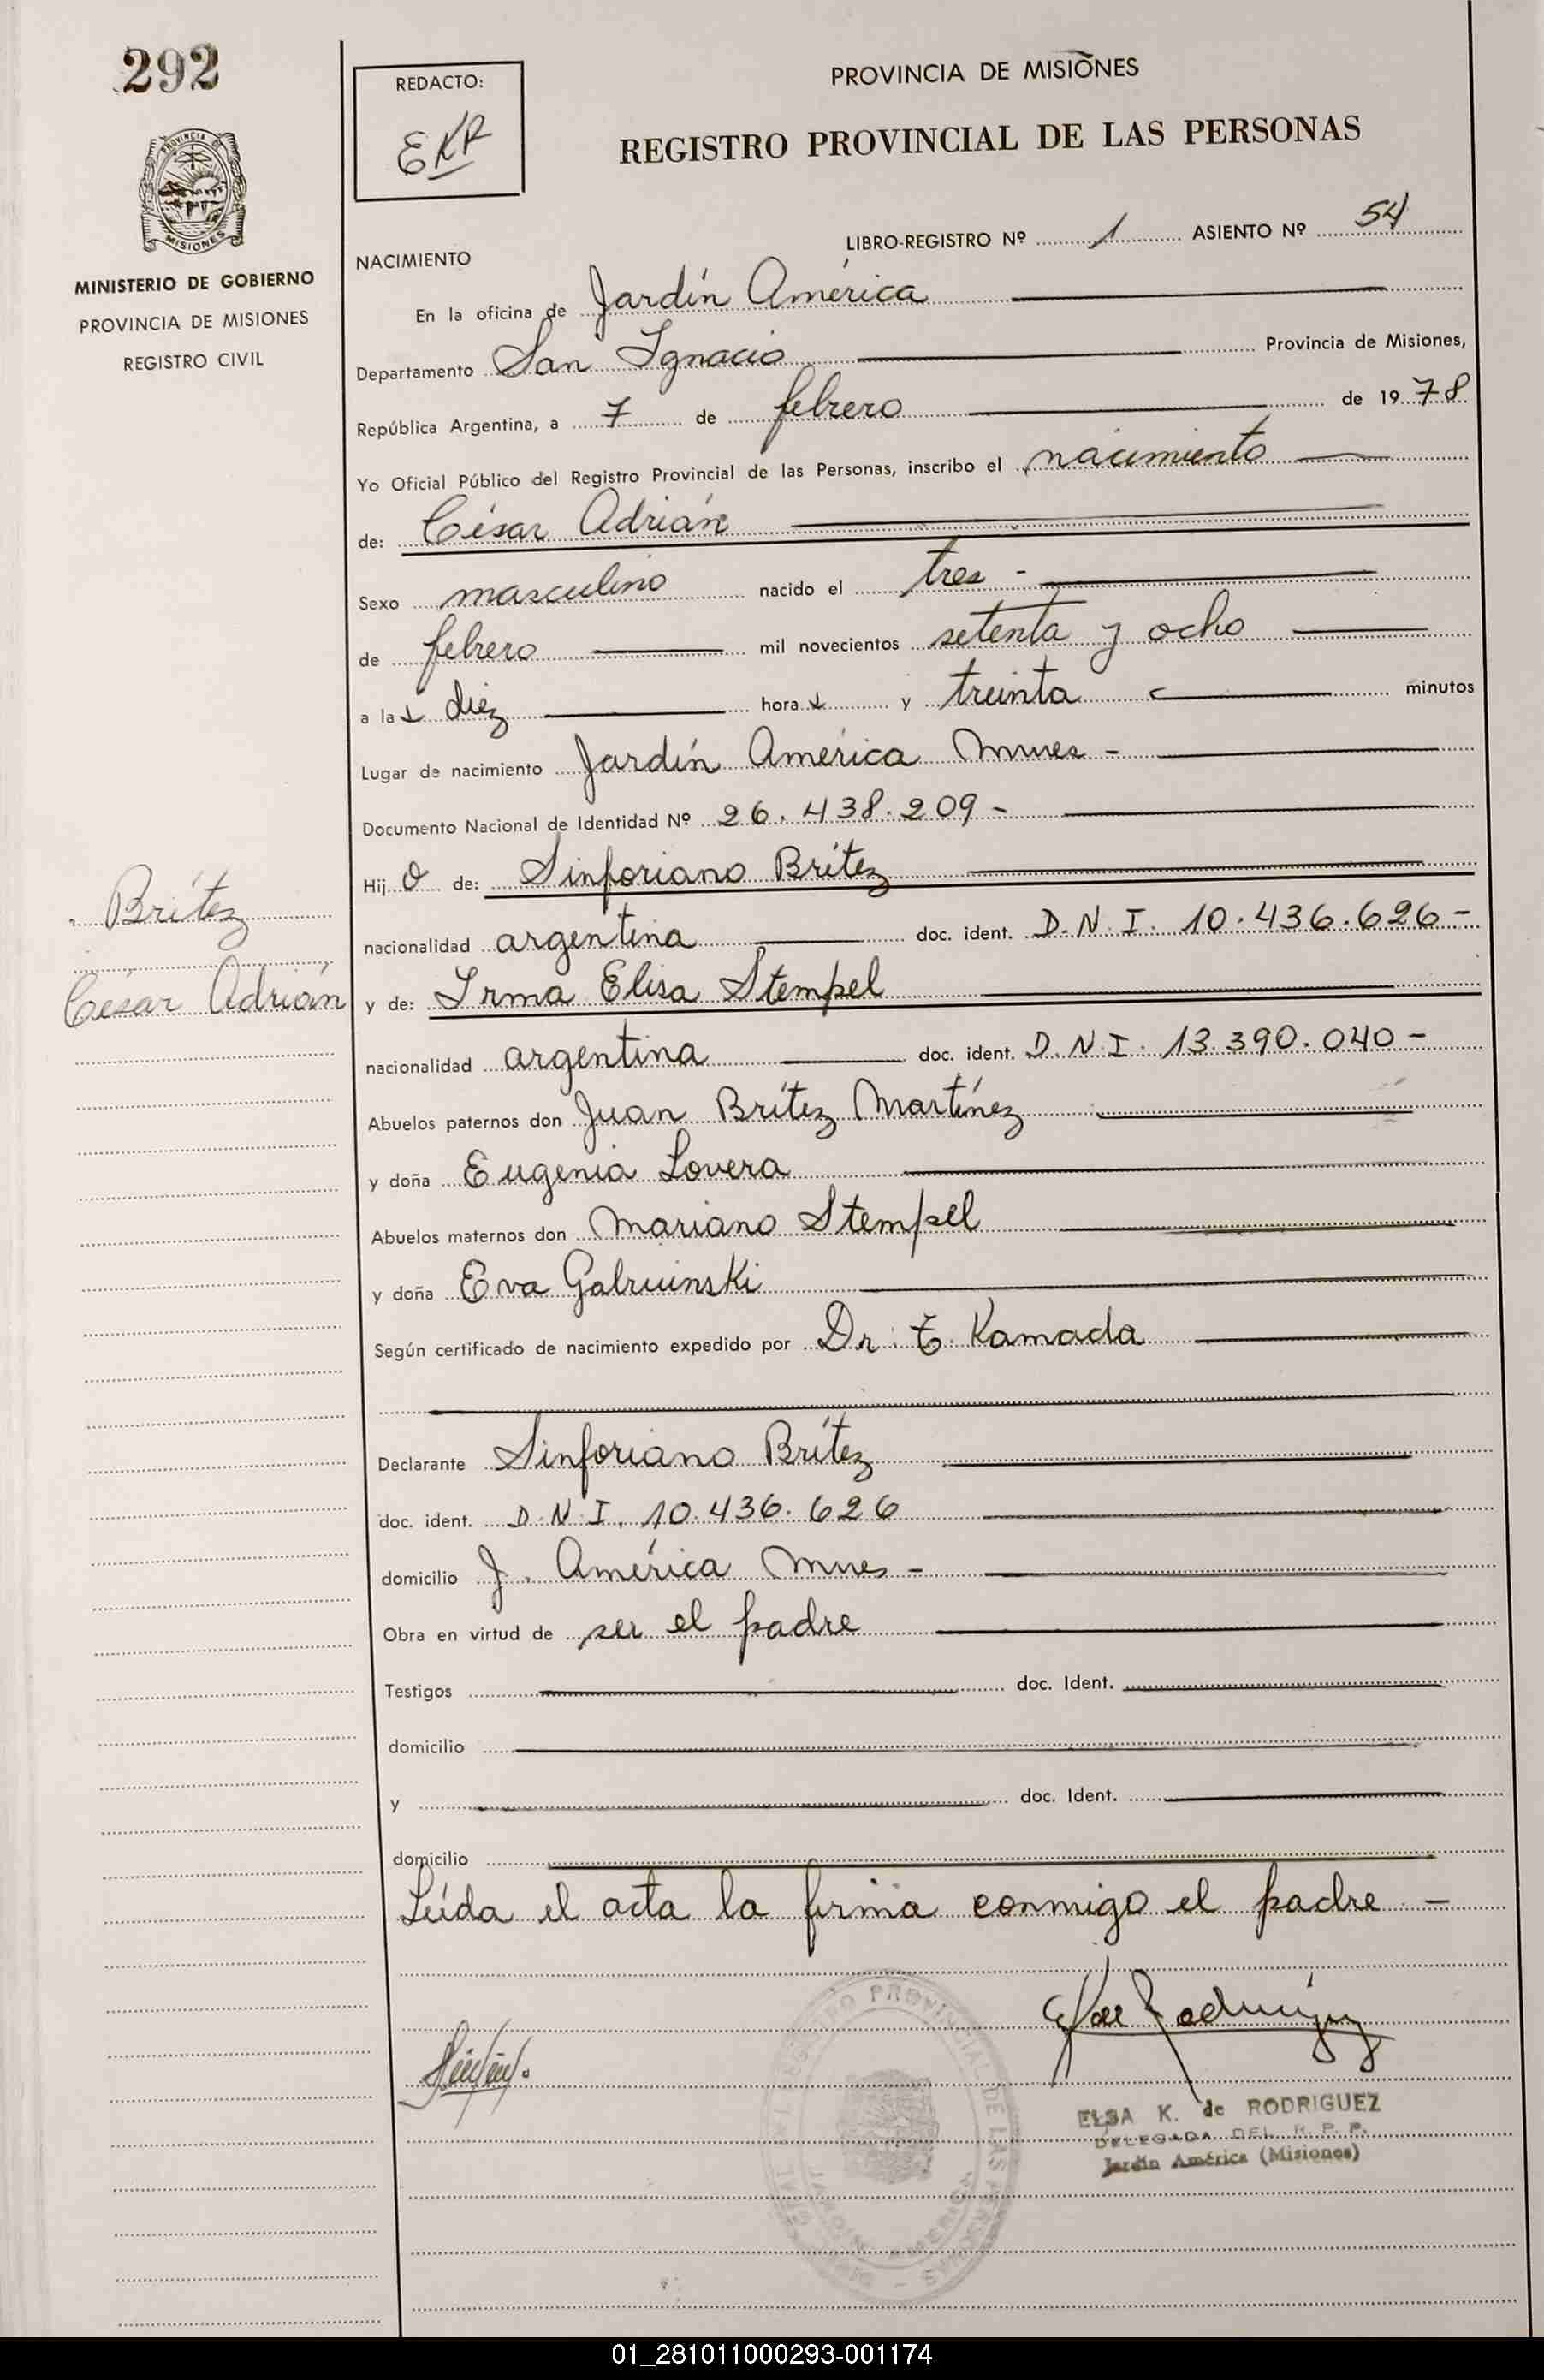 292
REDACTO:
EKR
PROVINCIA DE MISIONES
REGISTRO PROVINCIAL DE LAS PERSONAS
PROVINCIA
MISIONES
MINISTERIO DE GOBIERNO
PROVINCIA DE MISIONES
REGISTRO CIVIL
LIBRO-REGISTRO Nº 1 ASIENTO Nº 54
NACIMIENTO
En la oficina de Jardín América
Departamento San Ignacio Provincia de Misiones,
República Argentina, a 7 de febrero de 1978
Yo Oficial Público del Registro Provincial de las Personas, inscribo el nacimiento
de: César Adrián
Sexo masculino nacido el tres -
de febrero mil novecientos setenta y ocho
a las diez horas y treinta minutos
Lugar de nacimiento Jardín América Mnes -
Documento Nacional de Identidad Nº 26.438.209 -
Hijo de: Sinforiano Brítez
Brítez
César Adrián
nacionalidad argentina doc. ident. D.N.I. 10.436.626 -
y de: Irma Elisa Stempel
nacionalidad argentina doc. ident. D.N.I. 13.390.040 -
Abuelos paternos don Juan Brítez Martínez
y doña Eugenia Lovera
Abuelos maternos don Mariano Stempel
y doña Eva
Según certificado de nacimiento expedido por Dr. E. Kamada
Declarante Sinforiano Brítez
doc. ident. D.N.I. 10.436.626
domicilio J. América Mnes -
Obra en virtud de ser el padre
Testigos doc. Ident.
domicilio
y doc. Ident.
domicilio
Leída el acta la firma conmigo el padre -
ELSA K. de RODRIGUEZ
DELEGADA DEL R. P. P.
Jardín América (Misiones)
01_281011000293-001174